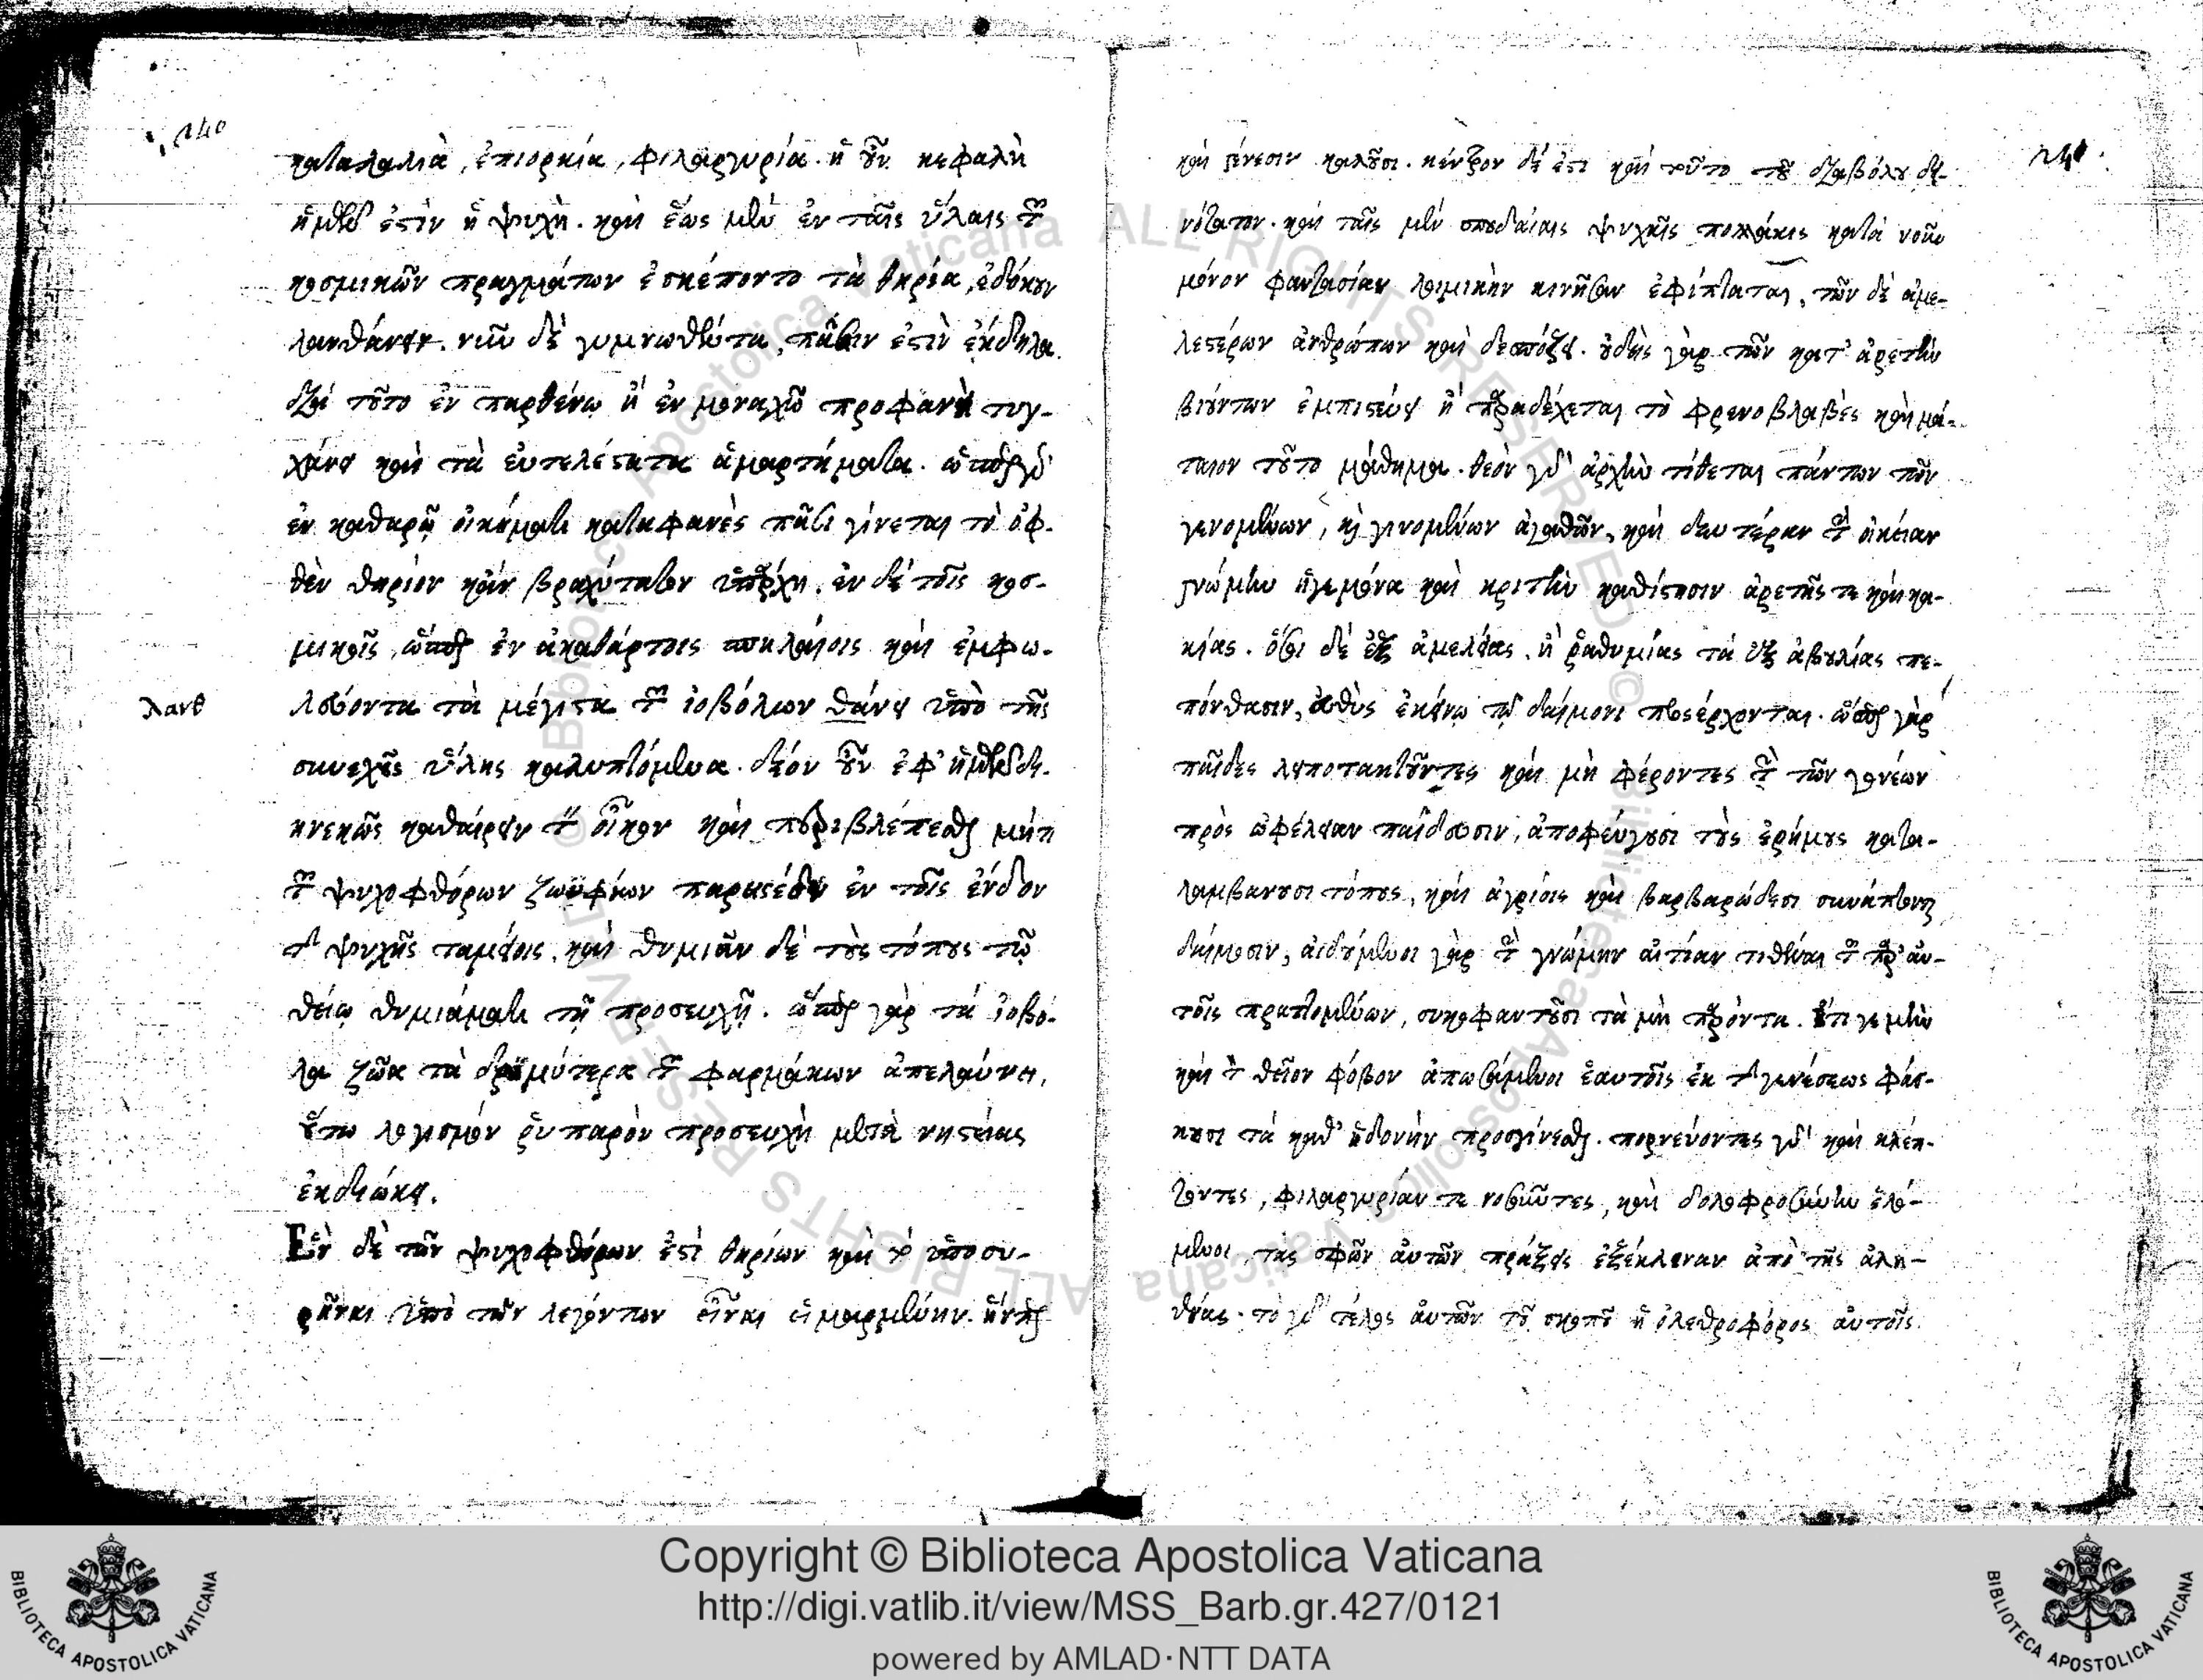 καταλαλιὰ, ἐπιορκία, φιλαργυρία. ἡ οὖν κεφαλὴ
ἡμῶν ἐστὶν ἡ ψυχὴ. καὶ ἕως μὲν ἐν ταῖς ὕλαις τῶν
κοσμικῶν πραγμάτων ἐσκέποντο τὰ θηρία, ἐδόκουν
λανθάνειν. νῦν δὲ γυμνωθέντα, πᾶσιν ἐστὶν ἔκδηλα.
διὰ τοῦτο ἐν παρθένῳ ἢ ἐν μοναχῷ προφανῆ τυγ-
χάνει καὶ τὰ εὐτελέστατα ἁμαρτήματα. ὥσπερ γὰρ
ἐν καθαρῷ οἰκήματι καταφανὲς πᾶσι γίνεται τὸ ὀφ-
θὲν θηρίον κἂν βραχύτατον ὑπάρχῃ. ἐν δὲ τοῖς κοσ-
μικοῖς, ὥσπερ ἐν ἀκαθάρτοις σπηλαίοις καὶ ἐμφω-
λεύοντα τὰ μέγιστα τῶν ἰοβόλων θάνει ὑπὸ τῆς
λανθ
συνεχῆς ὕλης καλυπτόμενα. δέον οὖν ἐφ' ἡμῶν διη-
νεκῶς καθαίρειν τὸν οἶκον καὶ περιβλέπεσθαι μήτι
τῶν ψυχοφθόρων ζωϋφίων παρεισέδυ ἐν τοῖς ἔνδον
τῆς ψυχῆς ταμείοις. καὶ θυμιᾶν δὲ τοὺς τόπους τῷ
θείῳ θυμιάματι τῇ προσευχῇ. ὥσπερ γὰρ τὰ ἰοβό-
λα ζῶα τὰ δριμύτερα τῶν φαρμάκων ἀπελαύνει,
οὕτω λογισμὸν ῥυπαρὸν προσευχὴ μετὰ νηστείας
ἐκδιώκει.
Ἓν δὲ τῶν ψυχοφθόρων ἐστὶ θηρίων καὶ τὸ ὑποσυ-
ρῆναι ὑπὸ τῶν λεγόντων εἶναι εἱμαρμένην. ἥντινα
καὶ γένεσιν καλοῦσι. κέντρον δέ ἐστι καὶ τοῦτο τοῦ διαβόλου δει-
νότατον. καὶ ταῖς μὲν σπουδαίαις ψυχαῖς πολλάκις κατὰ νοῦν
μόνον φαντασίαν λοιμικὴν κινῆσαν ἐφίπταται, τῶν δὲ ἀμε-
λεστέρων ἀνθρώπων καὶ δεσπόζει. οὐδεὶς γὰρ τῶν κατ' ἀρετὴν
βιούντων ἐμπιστεύει ἢ παραδέχεται τὸ φρενοβλαβὲς καὶ μά-
ταιον τοῦτο μάθημα. θεὸν γὰρ ἀρχὴν τίθεται πάντων τῶν
γενομένων, καὶ γινομένων ἀγαθῶν, καὶ δευτέραν τὴν οἰκείαν
γνώμην ἡγεμόνα καὶ κριτὴν καθίστησιν ἀρετῆς τε καὶ κα-
κίας. ὅσοι δὲ ἐξ ἀμελείας, ἢ ῥαθυμίας τὰ ἐξ ἀβουλίας πε-
πόνθασιν, εὐθὺς ἐκείνῳ τῷ δαίμονι προσέρχονται. ὥσπερ γὰρ
παῖδες λειποτακτοῦντες καὶ μὴ φέροντες τὴν τῶν γονέων
πρὸς ὠφέλειαν παίδευσιν, ἀποφεύγουσι τοὺς ἐρήμους κατα-
λαμβάνουσι τόπους, καὶ ἀγρίοις καὶ βαρβαρώδεσι συνάπτονται
δαίμοσιν, αἰδούμενοι γὰρ τὴν γνώμην αἰτίαν τιθέναι τῶν παρ' αὐ-
τοῖς πραττομένων, συκοφαντοῦσι τὰ μὴ παρόντα. ἔτι γε μὴν
καὶ τὸν θεῖον φόβον ἀπωσάμενοι ἑαυτοῖς ἐκ τῆς γενέσεως φάσ-
κουσι τὰ καθ' ἡδονὴν προσγίνεσθαι. πορνεύοντες γὰρ καὶ κλέπ-
τοντες, φιλαργυρίαν τε νοσοῦντες, καὶ δολοφροσύνην ἑλό-
μενοι, τὰς σφῶν αὐτῶν πράξεις ἐξέκλιναν ἀπὸ τῆς ἀλη-
θείας. τὸ γὰρ τέλος αὐτῶν τοῦ σκοποῦ ἡ ὀλεθροφόρος αὐτοῖς
Copyright © Biblioteca Apostolica Vaticana
http://digi.vatlib.it/view/MSS_Barb.gr.427/0121
powered by AMLAD·NTT DATA
BIBLIOTECA APOSTOLICA VATICANA
BIBLIOTECA APOSTOLICA VATICANA